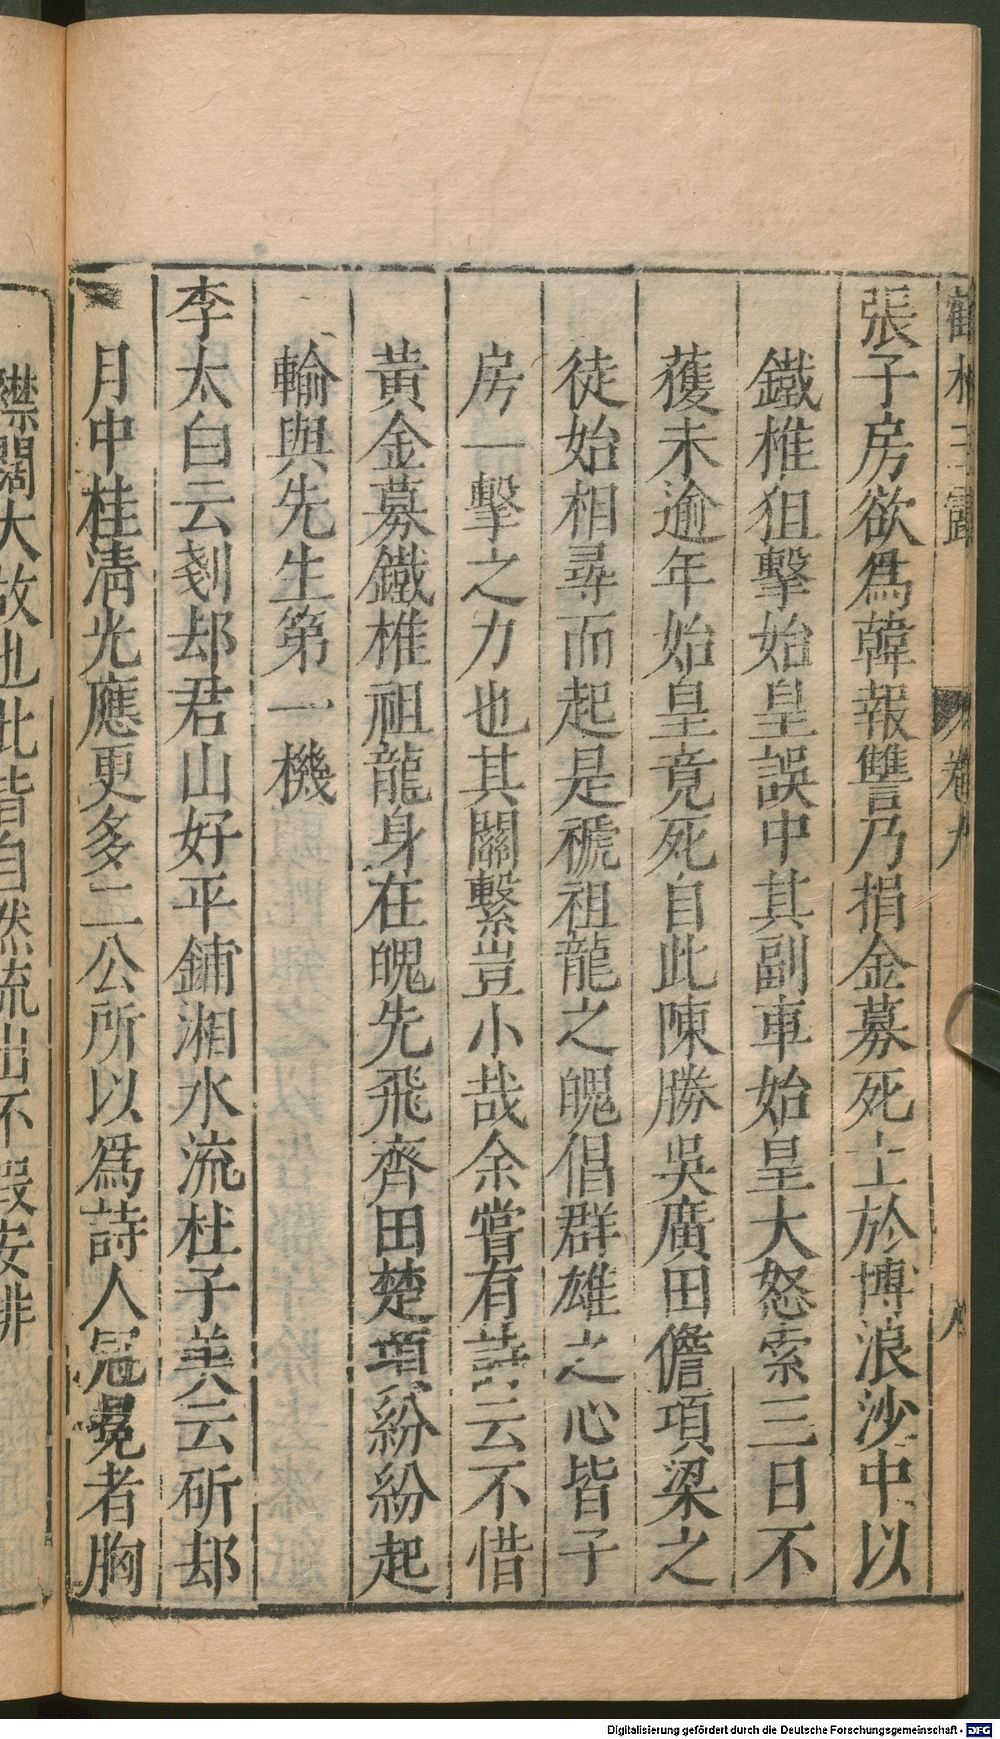 鶴林玉露 卷九 八
張子房欲爲韓報讐乃捐金募死士於博浪沙中以
鐵椎狙擊始皇誤中其副車始皇大怒索三日不
獲未逾年始皇竟死自此陳勝吳廣田儋項梁之
徒始相尋而起是褫祖龍之魄倡群雄之心皆子
房一擊之力也其關繫豈小哉余嘗有詩云不惜
黃金募鐵椎祖龍身在魄先飛齊田楚項紛紛起
輸與先生第一機
李太白云剗却君山好平鋪湘水流杜子美云斫却
月中桂淸光應更多二公所以爲詩人冠冕者胸
襟闊大故也此皆自然流出不假安排
Digitalisierung gefördert durch die Deutsche Forschungsgemeinschaft - DFG